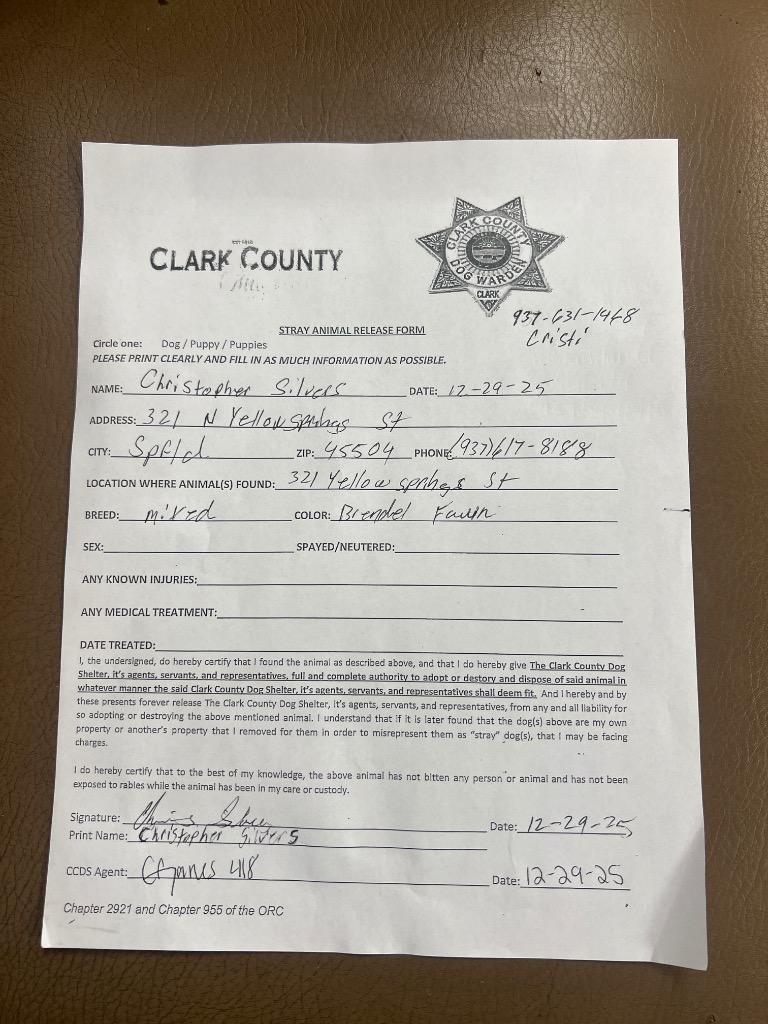 EST 1818
CLARK COUNTY
CLARK COUNTY
DOG WARDEN
CLARK
937-631-1468
Cristi
STRAY ANIMAL RELEASE FORM
Circle one: Dog / Puppy / Puppies
PLEASE PRINT CLEARLY AND FILL IN AS MUCH INFORMATION AS POSSIBLE.
NAME: Christopher Silvers DATE: 12-29-25
ADDRESS: 321 N Yellow Springs St
CITY: Spfld ZIP: 45504 PHONE: (937)617-8188
LOCATION WHERE ANIMAL(S) FOUND: 321 Yellow springs St
BREED: mixed COLOR: Brendel Fawn
SEX: SPAYED/NEUTERED:
ANY KNOWN INJURIES:
ANY MEDICAL TREATMENT:
DATE TREATED:
I, the undersigned, do hereby certify that I found the animal as described above, and that I do hereby give The Clark County Dog
Shelter, it's agents, servants, and representatives, full and complete authority to adopt or destory and dispose of said animal in
whatever manner the said Clark County Dog Shelter, it's agents, servants, and representatives shall deem fit. And I hereby and by
these presents forever release The Clark County Dog Shelter, it's agents, servants, and representatives, from any and all liability for
so adopting or destroying the above mentioned animal. I understand that if it is later found that the dog(s) above are my own
property or another's property that I removed for them in order to misrepresent them as "stray" dog(s), that I may be facing
charges.
I do hereby certify that to the best of my knowledge, the above animal has not bitten any person or animal and has not been
exposed to rabies while the animal has been in my care or custody.
Signature: Date: 12-29-25
Print Name: Christopher Silvers
CCDS Agent: 418 Date: 12-29-25
Chapter 2921 and Chapter 955 of the ORC